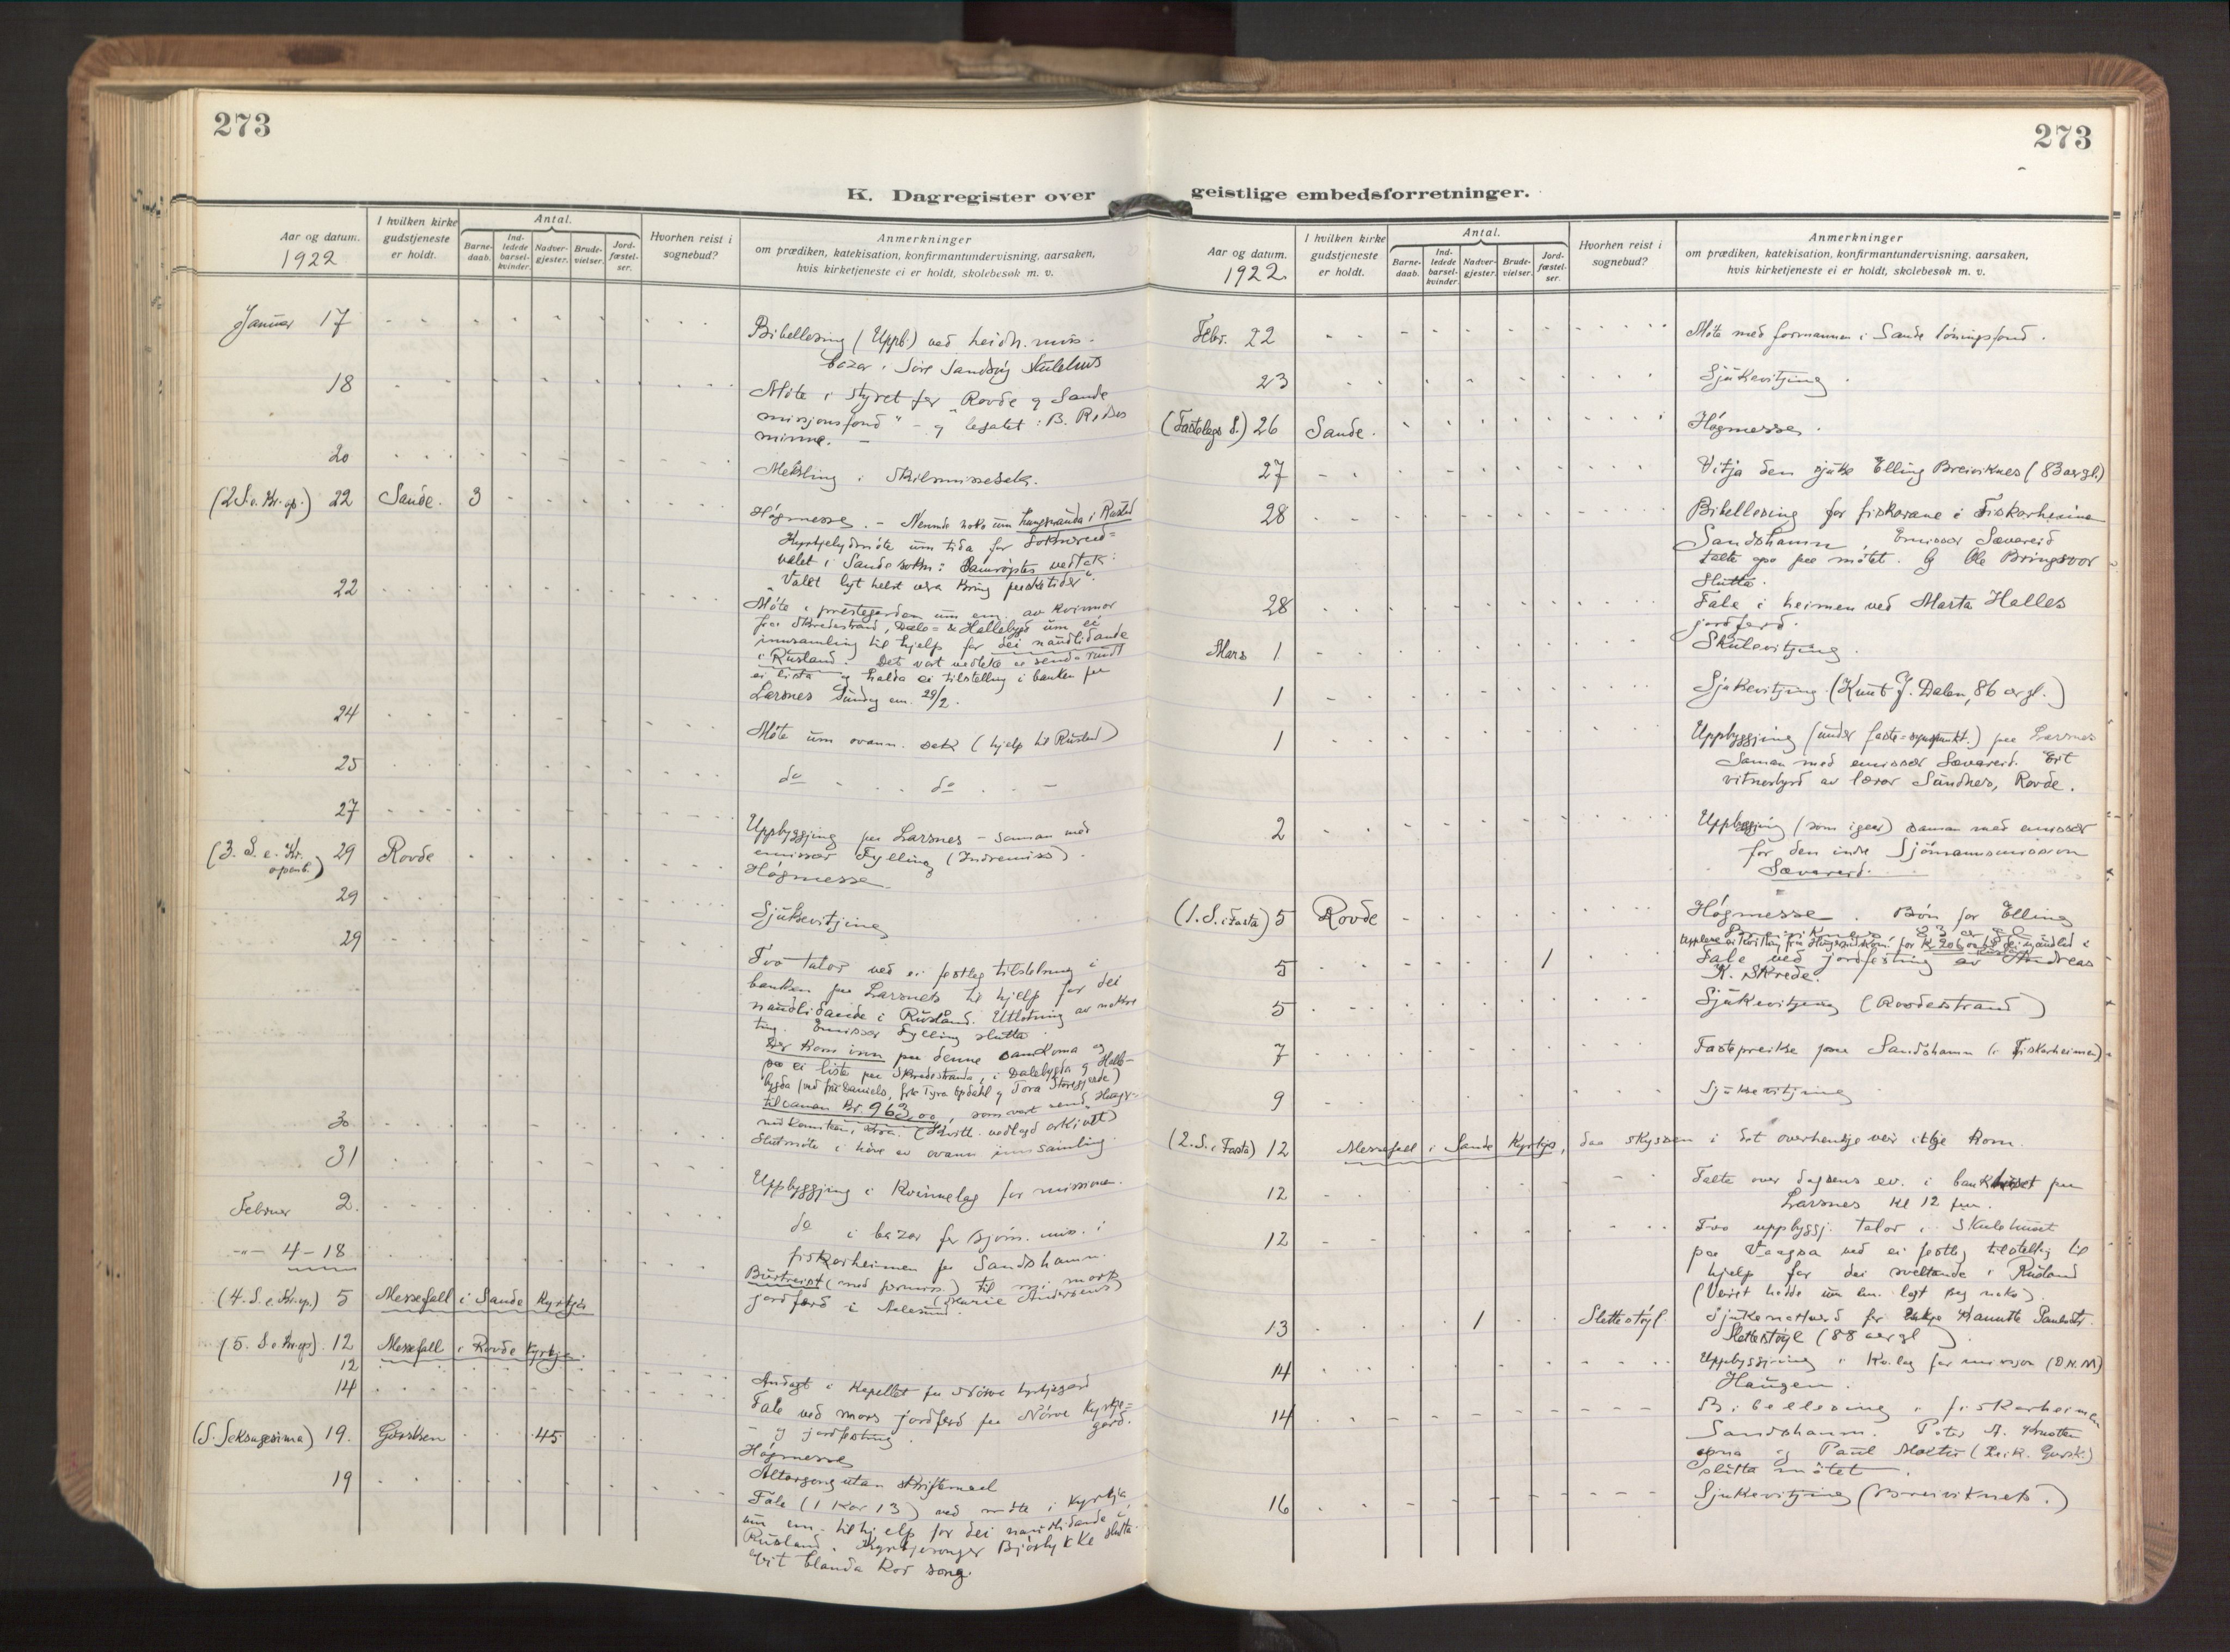 273
K. Dagregister over
Aar og datum.
1922
I hvilken kirke gudstjeneste er holdt.
Antal.
Barne-daab.
Ind-ledede barsel-kvinder.
Nadver-gjester.
Brude-vielser.
Jord-fæstel-ser.
Hvorhen reist i sognebud?
Anmerkninger
om prædiken, katekisation, konfirmantundervisning, aarsaken,
hvis kirketjeneste ei er holdt, skolebesøk m. v.
Januar 17
Bibellesing (Uppb.) ved heidn. mis-
bazar i Søre Sandvig skulehus
18
Møte i styret for Rovde og Sande
misjonsfond" - og legatet: B.
minne. -
20
Mekling i skilsmissesak.
(2 S. e. Kr. op.) 22 Sande. 3
Høgmesse. - Nemnde noko um hungrsnauda i Rusland
Kyrkjelydsmøte um tida for Soknereid-
valet i Sande sokn: Samrøystes vedtak:
"Valet lyt helst vera kring paasketider".
22
Møte i prestegarden um em. av kvinnor
fraa Skredestrand, Dale- & Hallebygd um ei
innsamling til hjelp for dei naudlidande
i Rusland. Det vart vedteke aa senda rundt
ei lista og halda ei tilstelling i banken paa
Larsnes Sundag em. 29/2.
24
Møte um ovann. sak (hjelp til Rusland)
25
do - . . do . . -
27
Uppbyggjing paa Larsnes - saman med
emissær Fylling (Indremiss).
(3. S. e. Kr. openb.) 29 Rovde
Høgmesse.
29
Sjukevitjing
29
Tvo talor ved ei festleg tilstelning i
banken paa Larsnes til hjelp for dei
naudlidande i Rusland. Utlotning av nokre
ting. Emissær Fylling slutta.
Der kom inn paa denne samkoma og
paa ei liste paa Skredestranda, i Dalebygda og Halle-
bygda (ved fru Daniels, frk Tyra Opdahl og Tora Storegjerde)
tilsaman kr. 963,00, som vart send
(Kvitt. vedlagd arkivet)
30
Slutmøte i høve av ovann innsamling.
31
Uppbyggjing i Kvinnelag for misjonen.
Februar 2.
do i bazar for sjøm. mis. i
fiskarheimen paa Sandshamn.
-"- 4-18
Burtreist (med permis.) til mi mors
jordferd i Aalesund. (Marie Andersens)
(4. S. e. Kr. op.) 5 Messefall i Sande kyrkja
(5. S. e. Kr. op.) 12 Messefall i Rovde kyrkja.
12
Andagt i Kapellet paa Nørve kyrkjegard
14
Tale ved mors jordferd paa Nørve kyrkje-
gard.
- og jordfesting.
(S. Seksagesima) 19. Gursken 45
Høgmesse
Altargang utan skriftemaal
19
Tale (1 Kor 13) ved møte i kyrkja
um em. til hjelp for dei naudlidande i
Rusland. Kyrkjesongar Bjørlykke slutta.
Eit blanda kor song.
273
geistlige embedsforretninger.
Aar og datum.
1922
I hvilken kirke gudstjeneste er holdt.
Antal.
Barne-daab.
Ind-ledede barsel-kvinder.
Nadver-gjester.
Brude-vielser.
Jord-fæstel-ser.
Hvorhen reist i sognebud?
Anmerkninger
om prædiken, katekisation, konfirmantundervisning, aarsaken,
hvis kirketjeneste ei er holdt, skolebesøk m. v.
Febr. 22
Møte med formannen i Sande løningsfond.
23
Sjukevitjing.
(Fastelags S.) 26 Sande.
Høgmesse.
27
Vitja den sjuke Elling Breiviknes (83 aar gl.)
28
Bibellesing for fiskarane i Fiskarheimen
Sandshamn. Emissær Sævareid
talte ogso paa møtet. Og Ole Bringsvor
slutta.
28
Tale i heimen ved Marta Halles
jordferd.
Mars 1
Skulevitjing.
1
Sjukevitjing (Knut J. Dalen, 86 aar gl.)
1
Uppbyggjing (under faste-synspunkt.) paa Larsnes
Saman med emissær Sævareid. Eit
vitnesbyrd av lærar Sundnes, Rovde.
2
Uppbyggjing (som igaar) saman med emissær
for den indre Sjømannsmission
Sævareid.
(1. S. i Fasta) 5 Rovde
Høgmesse. Bøn for Elling
Breiviknes 83 aar gl.
5 1
Tale ved jordfesting av Andreas
K. Skrede.
5
Sjukevitjing (Rovdestrand)
7
Fastepreike paa Sandshamn (i Fiskarheimen)
9
Sjukevitjing
(2. S. i Fasta) 12 Messefall i Sande kyrkja, daa skyssen i det overhendige veir ikkje kom.
12
Talte over dagsens ev. i bankhuset paa
Larsnes kl 12 fm.
12
Tvo uppbyggj. talor i Skulehuset
paa Vaagsa ved ei festleg tilstelling til
hjelp for dei sveltande i Rusland
(Veiret hadde um em. lagt seg noko).
13 1 Slettestøyl
Sjukenattverd for enkja Hannette Paulsdtr.
Slettestøyl (88 aar gl)
14
Uppbyggjing i kv. lag for misjon (D.N.M)
Haugen.
14
Bibellesing i fiskarheimen
Sandshamn. Peter A. Knotten
opna og Paul Moltu (Leik. Gursk.)
slutta møtet.
16
Sjukevitjing (Breiviknes.)